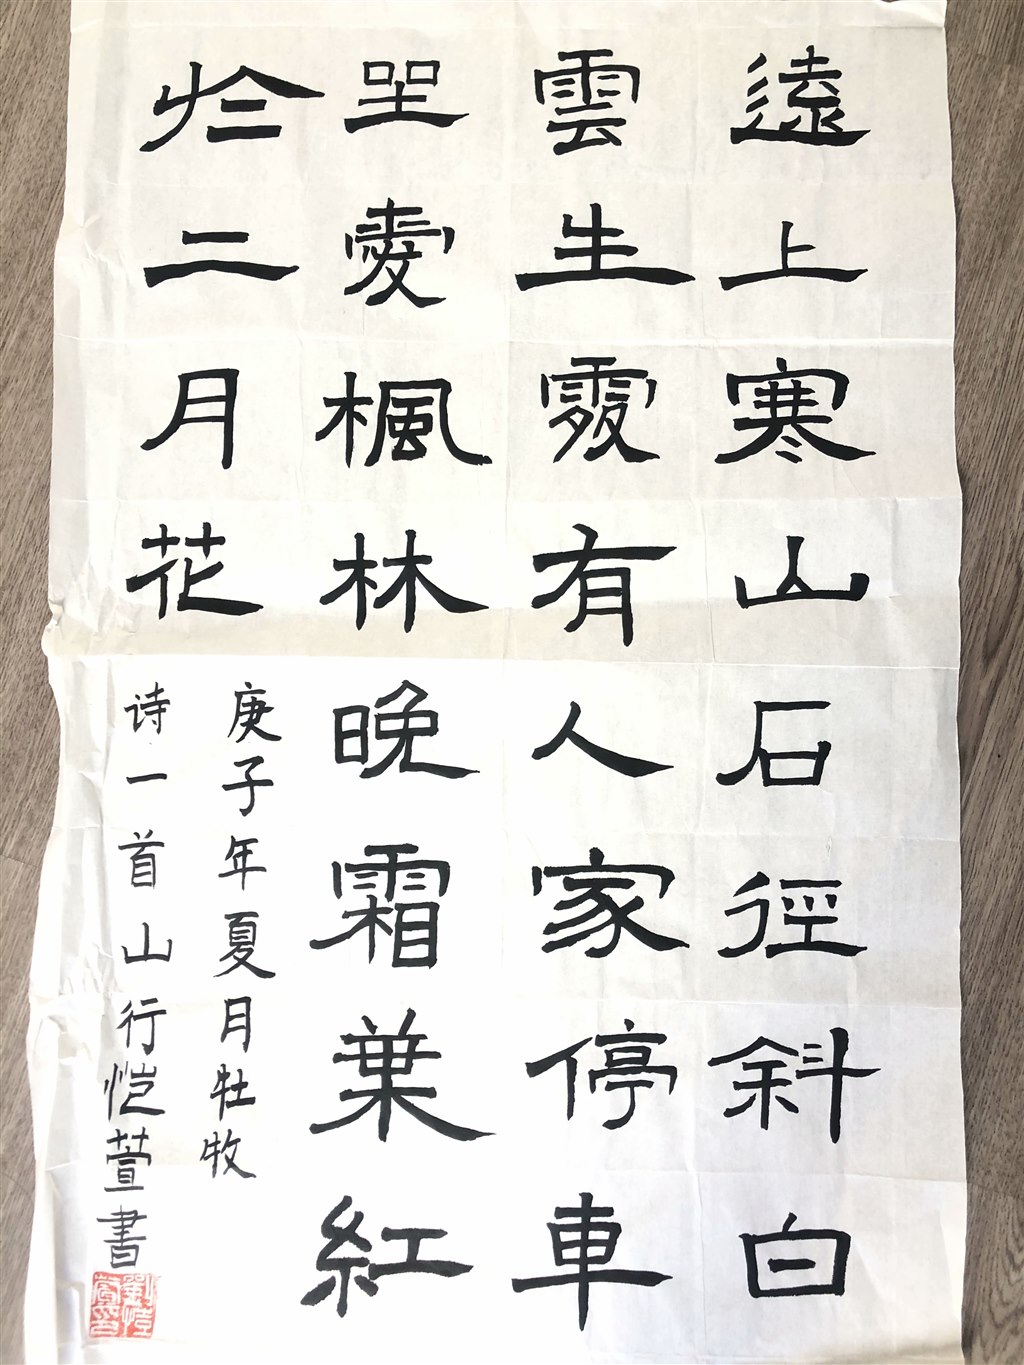 遠上寒山石徑斜白
雲生處有人家停車
坐愛楓林晚霜葉紅
於二月花
庚子年夏月牡牧
诗一首山行恺萱書
劉恺萱印